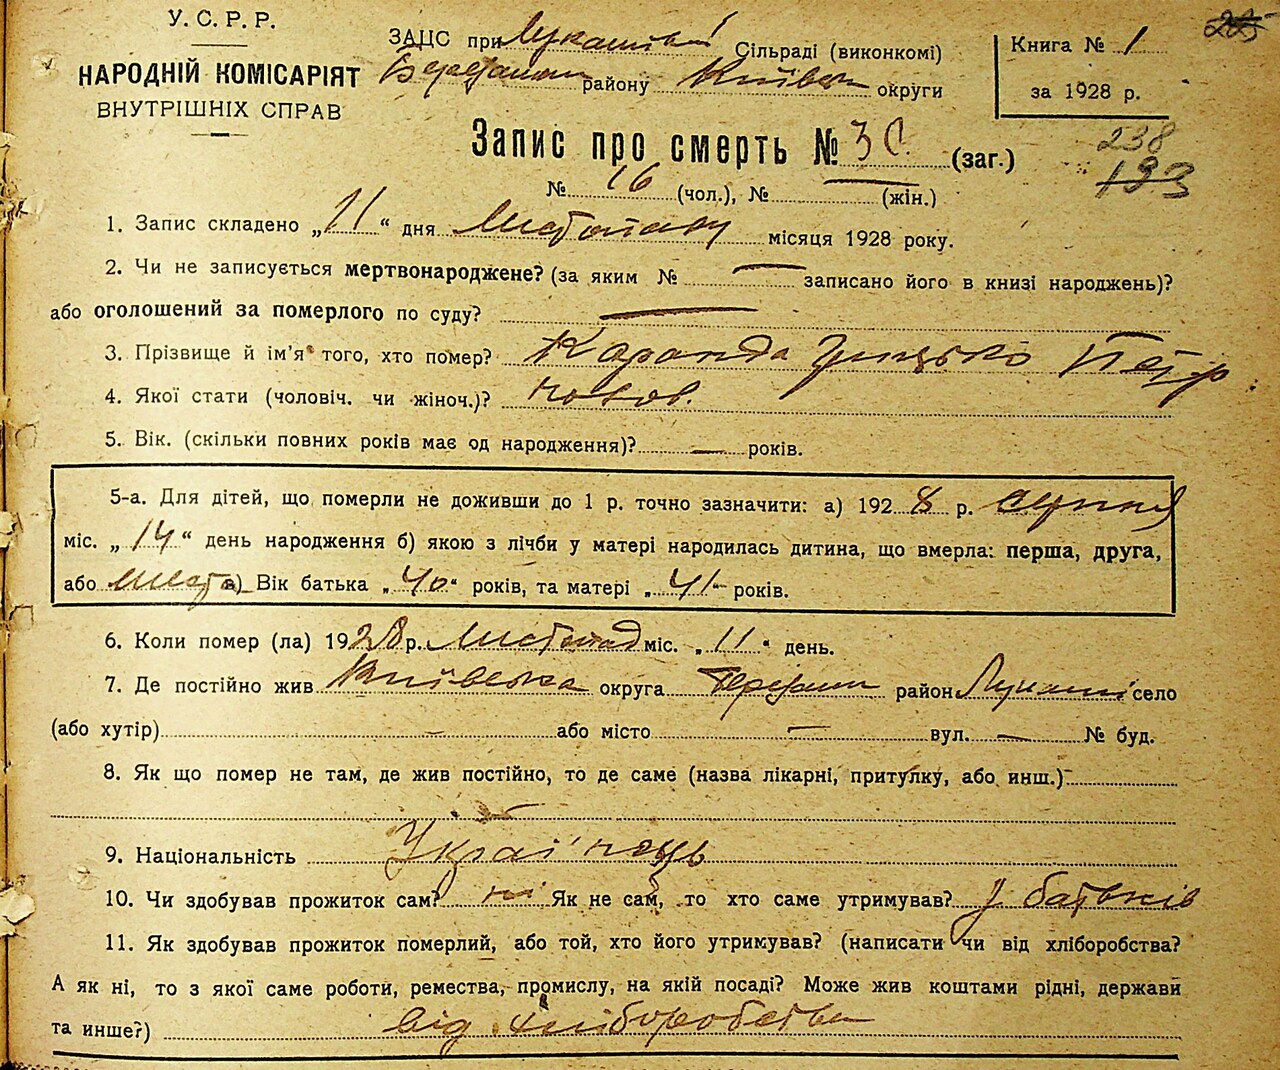 У. С. Р. Р.
НАРОДНІЙ КОМІСАРІЯТ
ВНУТРІШНІХ СПРАВ
ЗАЦС при Лукашівській Сільраді (виконкомі)
Березанськ району Київськ округи
Книга № 1
за 1928 р.
225
Запис про смерть № 30 (заг.)
238
193
№ 16 (чол.), № — (жін.)
1. Запис складено „11“ дня Листопаду місяця 1928 року.
2. Чи не записується мертвонароджене? (за яким № — записано його в книзі народжень)?
або оголошений за померлого по суду? —
3. Прізвище й ім'я того, хто помер? Грицько Петр
4. Якої стати (чоловіч. чи жіноч.)? чолов.
5. Вік. (скільки повних років має од народження)? — років.
5-а. Для дітей, що померли не доживши до 1 р. точно зазначити: а) 1928 р. серпня
міс. „14“ день народження б) якою з лічби у матері народилась дитина, що вмерла: перша, друга,
або шоста в) Вік батька „40“ років, та матері „41“ років.
6. Коли помер (ла) 1928 р. листопад міс. „11“ день.
7. Де постійно жив Київська округа Березанськ район Лукаші село
(або хутір) — або місто — вул. — № буд.
8. Як що помер не там, де жив постійно, то де саме (назва лікарні, притулку, або инш.)
9. Національність Украї'нець
10. Чи здобував прожиток сам? ні Як не сам, то хто саме утримував? у батьків
11. Як здобував прожиток померлий, або той, хто його утримував? (написати чи від хліборобства?
А як ні, то з якої саме роботи, ремества, промислу, на якій посаді? Може жив коштами рідні, держави
та инше?) від хліборобства